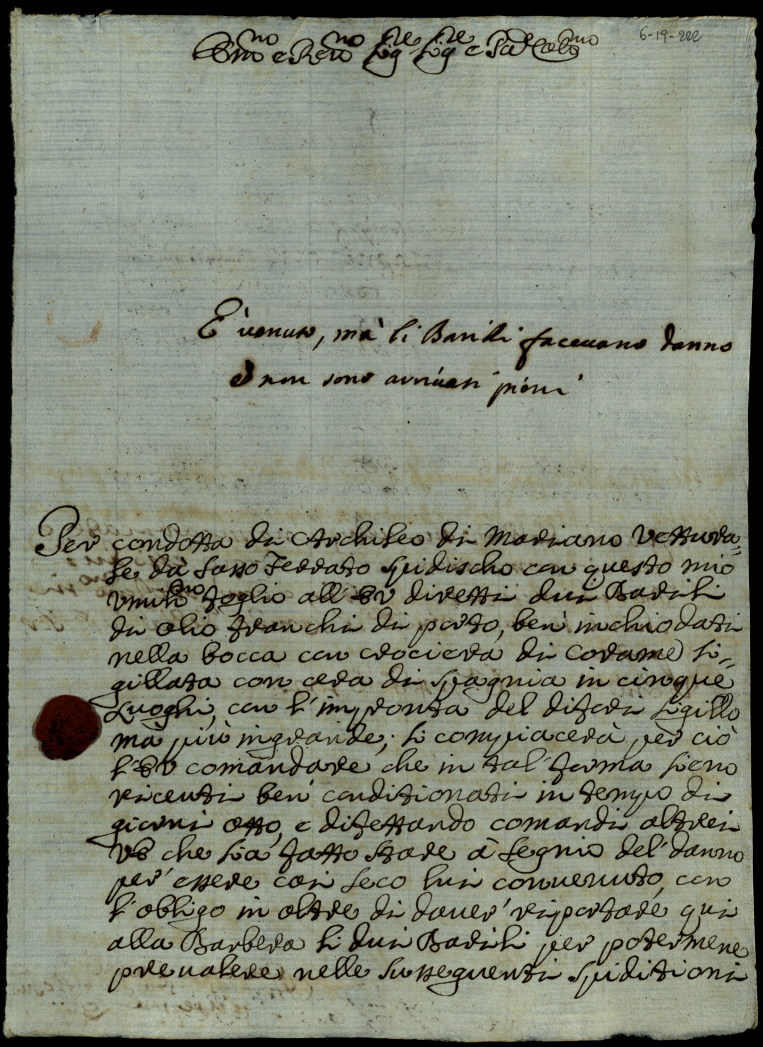 6-19-222
Em.mo e Rev.mo Sig.re Sig.re e Pad. Col.mo
È venuto, mà li Barili facevano danno
et non sono arrivati pieni
Per condotta di Archileo di Mariano Vettura=
le da Sasso Ferrato spidischo con questo mio
umil.mo foglio all' diretti dui Barili
di olio franchi di porto, ben' inchiodati
nella bocca con crociera di Corame si=
gillata con cera di spagnia in cinque
Luoghi, con l'impronta del di fori sigillo
mà più in grande; si compiacerà per ciò
l' comandare che in tal' forma sieno
riceuti ben' conditionati in tempo di
giorni otto, e difettando comandi altresi
che sia fatto stare à segnio del' danno
per' essere così seco lui convenuto, con
l'obligo in oltre di dover' riportare qui
alla Barbera li dui Barili per potermene
prevalere nelle susseguenti spiditioni